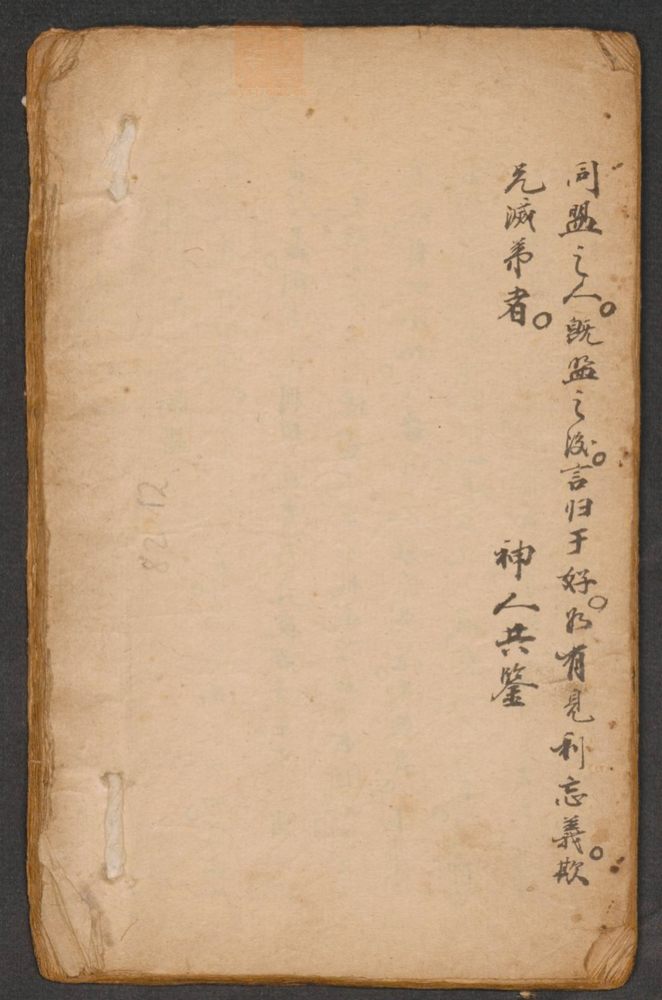 同盟之人。既盟之後。言归于好。如有見利忘義。欺
兄滅弟者。
神人共鑒
82.12